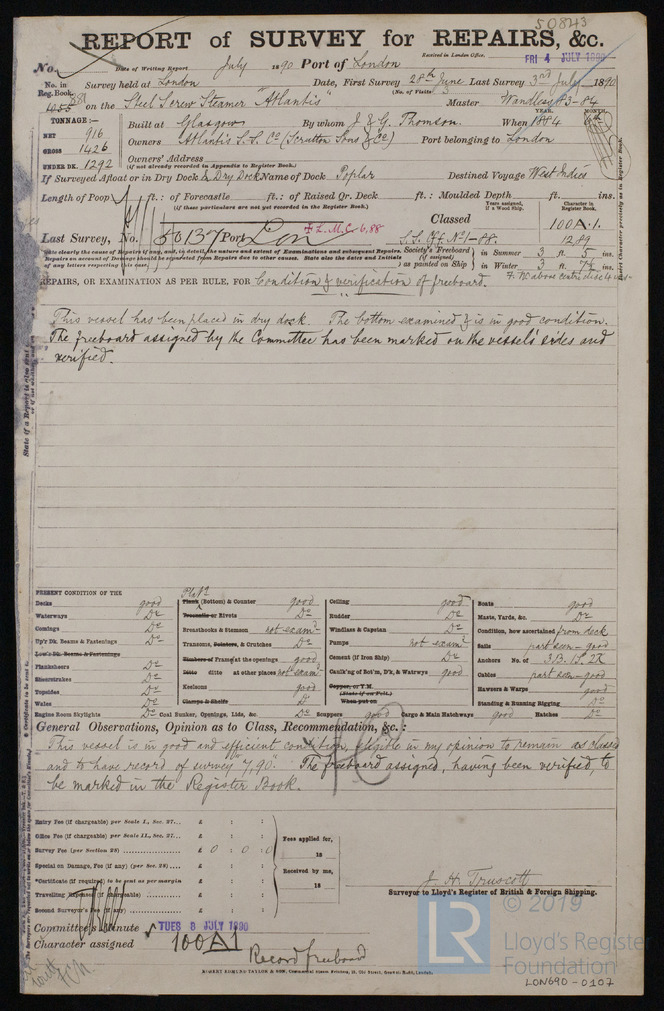 50843
REPORT of SURVEY for REPAIRS, &c.
Received in London Office.
FRI 4 JULY 1890
No.
Date of Writing Report July 1890 Port of London
No. in Reg. Book.
Survey held at London Date, First Survey 28th June Last Survey 3rd July 1890
(No. of Visits)
on the Steel Screw Steamer "Atlantis" Master
TONNAGE:—
NET 916
GROSS 1426
UNDER DK. 1292
Built at Glasgow By whom J. & G. Thomson. When 1884
YEAR. MONTH.
Owners Atlantis S.S. Co (Scrutton Sons & Co) Port belonging to London
Owners' Address
(if not already recorded in Appendix to Register Book.)
If Surveyed Afloat or in Dry Dock In Dry Dock Name of Dock Poplar Destined Voyage West Indies
Length of Poop ft.: of Forecastle ft.: of Raised Qr. Deck ft.: Moulded Depth ft. ins.
(if these particulars are not yet recorded in the Register Book.)
Years assigned, if a Wood Ship.
Character in Register Book.
Classed 100A.1.
Last Survey, No. 50137 Port Lon
+L.M.C. 6,88
S.S. Off. No 1-88.
12.89
Society's Freeboard (if assigned) as painted on Ship
in Summer 3 ft. 5 ins.
in Winter 3 ft. 7½ ins.
REPAIRS, OR EXAMINATION AS PER RULE, FOR Condition & verification of freeboard.
This vessel has been placed in dry dock. The bottom examined & is in good condition.
The freeboard assigned by the Committee has been marked on the vessel's sides and
verified.
PRESENT CONDITION OF THE
Decks good
Waterways Do
Comings Do
Up'r Dk. Beams & Fastenings Do
Low'r Dk. Beams & Fastenings
Planksheers Do
Sheerstrakes Do
Topsides Do
Wales Do
Engine Room Skylights Do
Plank (Bottom) & Counter good
Treenails or Rivets Do
Breasthooks & Stemson not examd
Transoms, Pointers, & Crutches Do
Timbers of Frame at the openings good
Ditto ditto at other places not examd
Keelsons good
Clamps & Shelfs Do
Coal Bunker, Openings, Lids, &c. Do
Ceiling good
Rudder Do
Windlass & Capstan Do
Pumps not examd
Cement (if Iron Ship) Do
Caulk'ng of Bot'm, D'k, & Watrways good
Copper, or Y.M.
(State if on Felt.)
When put on
Scuppers good
Cargo & Main Hatchways good
Boats good
Masts, Yards, &c. Do
Condition, how ascertained from deck
Sails part seen - good
Anchors No. of 3.B. 1S. 2K
Cables part seen - good
Hawsers & Warps good
Standing & Running Rigging Do
Hatches Do
General Observations, Opinion as to Class, Recommendation, &c.:
This vessel is in good and efficient condition, eligible in my opinion to remain as classed
and to have record of survey "7,90". The freeboard assigned, having been verified, to
be marked in the Register Book.
Entry Fee (if chargeable) per Scale I., Sec. 27... £ : :
Office Fee (if chargeable) per Scale II., Sec. 27... £ : :
Survey Fee (per Section 28) £ 0 : 0 : 0
Special on Damage, Fee (if any) (per Sec. 28) £ : :
*Certificate (if required) to be sent as per margin
Travelling Expenses (if chargeable) £ : :
Second Surveyor's Fee (if any) £ : :
Fees applied for,
18
Received by me,
18
J. H. Truscott
Surveyor to Lloyd's Register of British & Foreign Shipping.
Committee's Minute TUES 8 JULY 1890
Character assigned 100A1
Record freeboard
LR
© 2019
Lloyd's Register
Foundation
LON690-0107